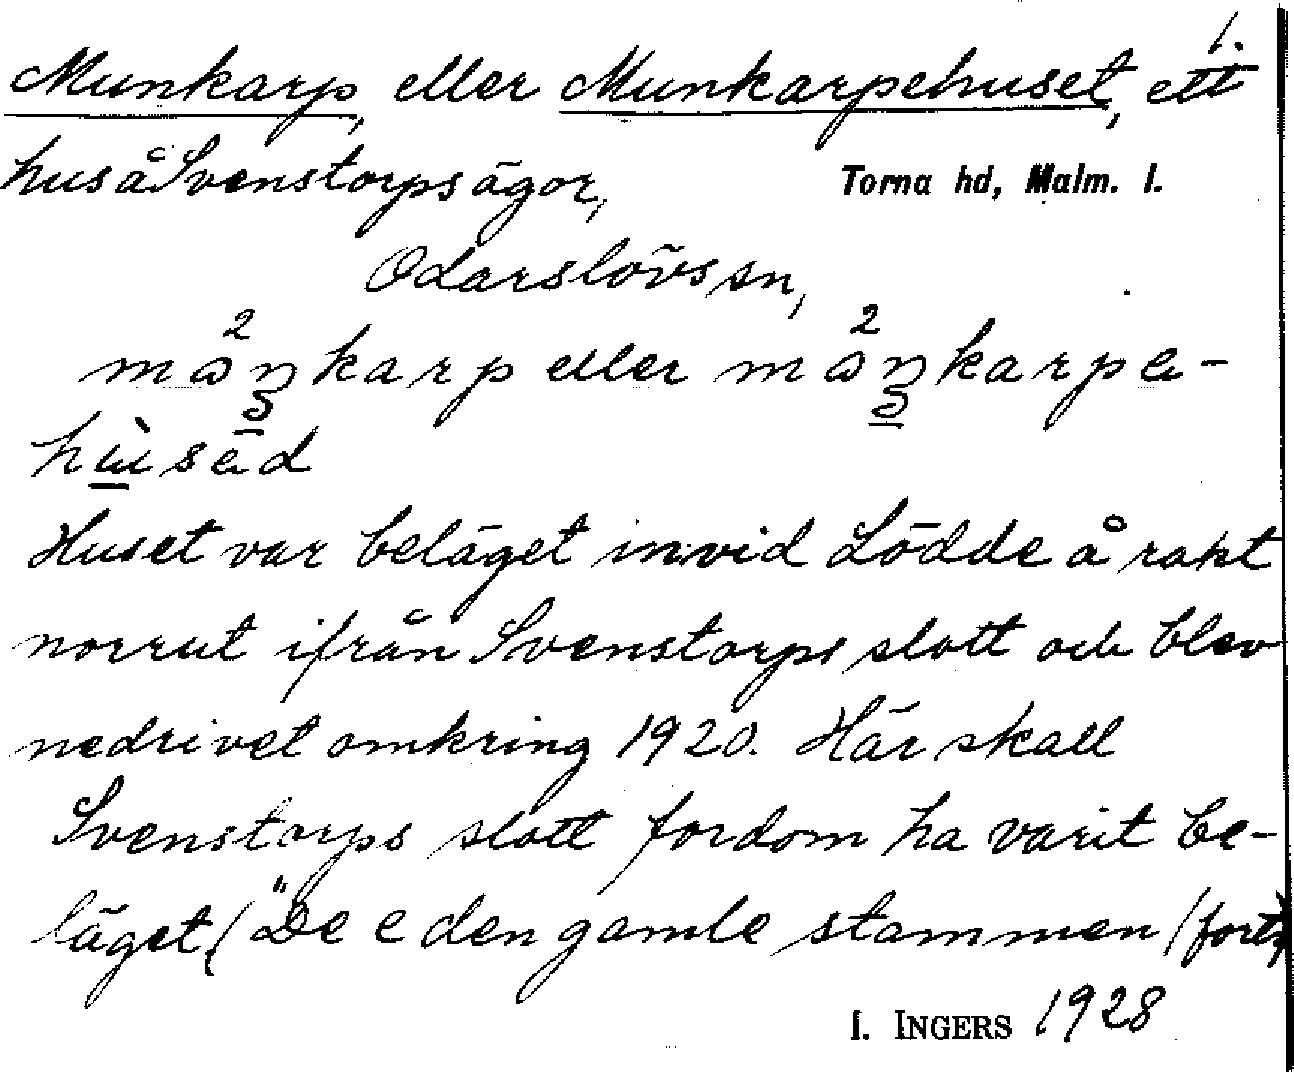 1.
Munkarp, eller Munkarpehuset, ett
hus å Svenstorps ägor,
Torna hd, Malm. l.
Odarslövs sn,
karp eller
Huset var beläget invid Lödde å rakt
norrut ifrån Svenstorps slott och blev
nedrivet omkring 1920. Här skall
Svenstorps slott fordom ha varit be-
läget ("De e den gamle stammen (forts)
I. INGERS 1928